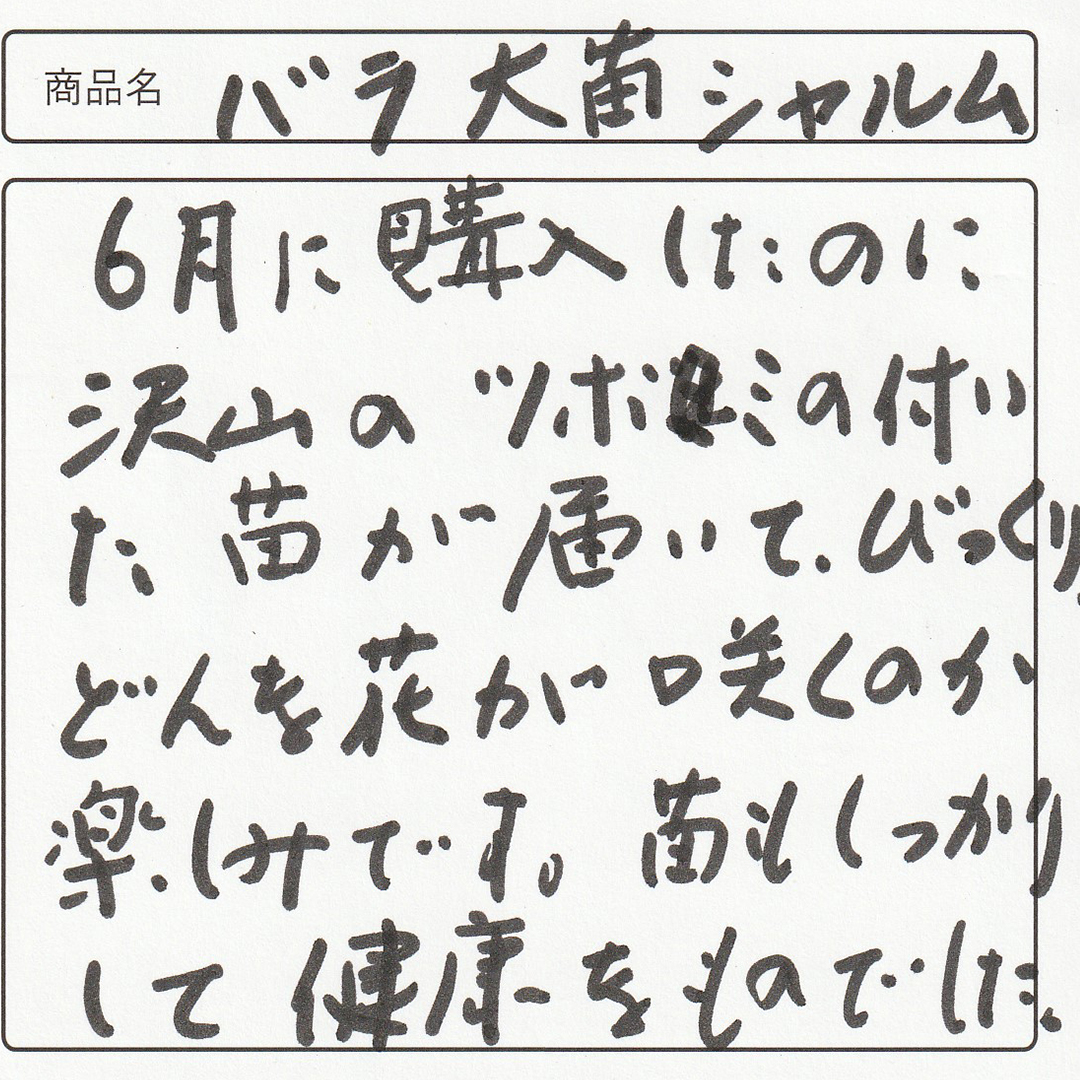 商品名 バラ大苗シャルム
6月に購入したのに
沢山のツボミの付い
た苗が届いて、びっくり。
どんな花が咲くのか
楽しみです。苗もしっかり
して健康なものでした。